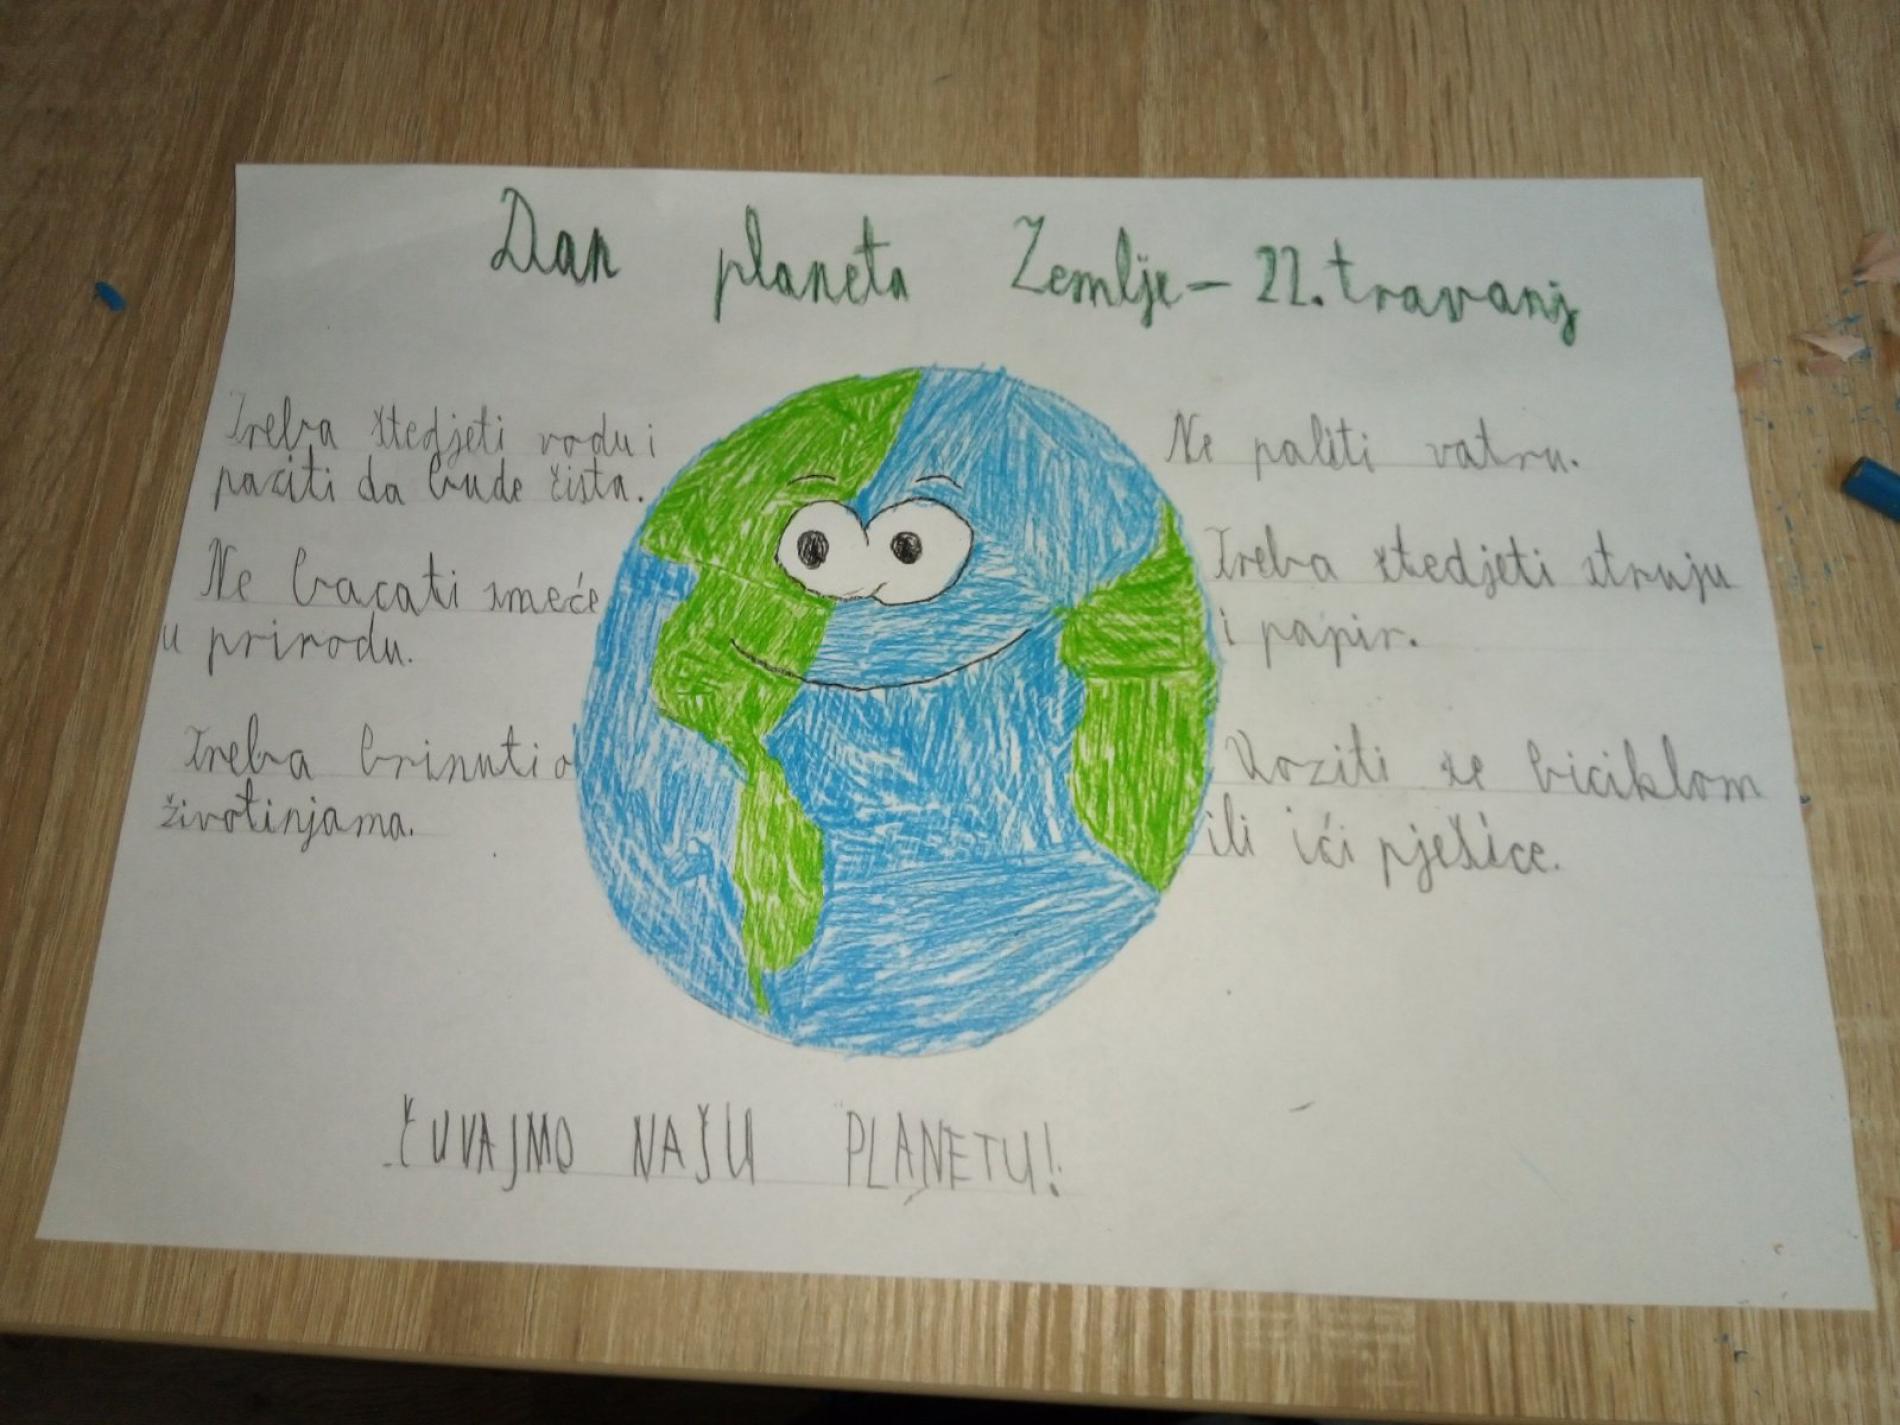 Dan planeta Zemlje - 22. travanj
Treba štedjeti vodu i
paziti da bude čista.
Ne bacati smeće
u prirodu.
Treba brinuti o
životinjama.
Ne paliti vatru.
Treba štedjeti struju
i papir.
Voziti se biciklom
ili ići pješice.
ČUVAJMO NAŠU PLANETU!